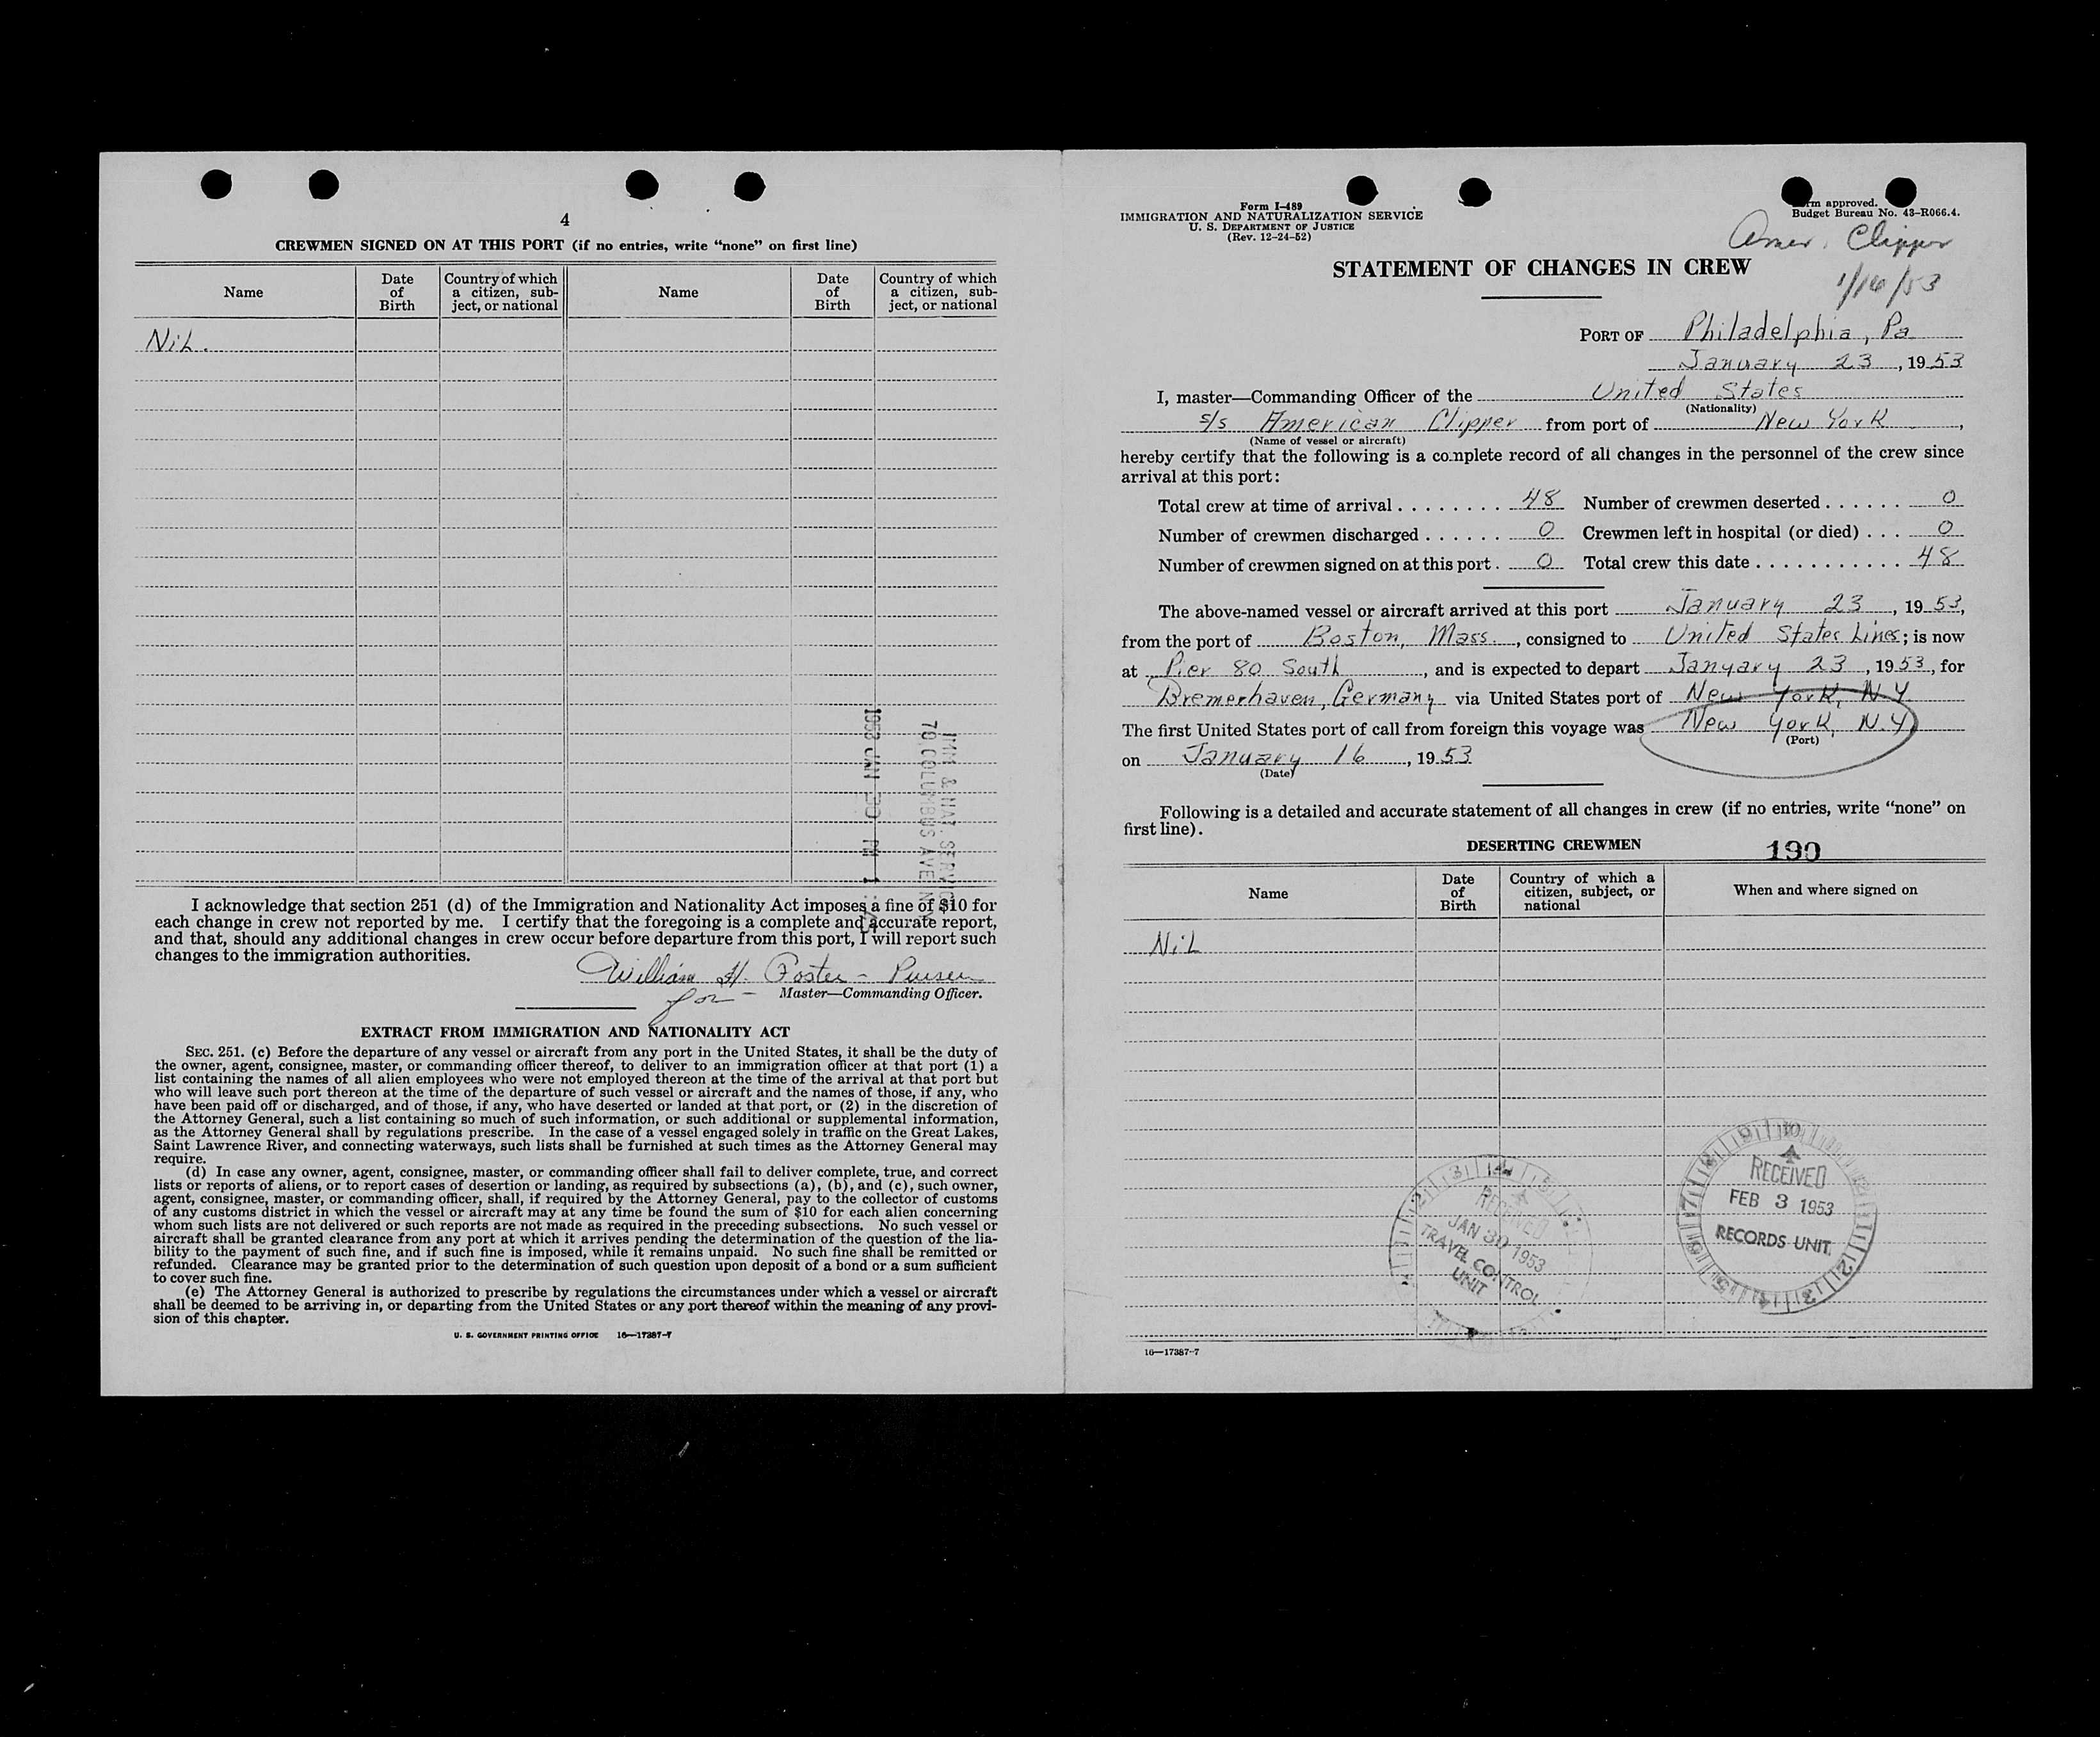 4
CREWMEN SIGNED ON AT THIS PORT (if no entries, write “none” on first line)
Name
Date of Birth
Country of which a citizen, sub-ject, or national
Name
Date of Birth
Country of which a citizen, sub-ject, or national
Nil.
IMM & NAT. SERVICE
70 COLUMBUS AVE
1953 JAN 30 PM 1
I acknowledge that section 251 (d) of the Immigration and Nationality Act imposes a fine of $10 for
each change in crew not reported by me. I certify that the foregoing is a complete and accurate report,
and that, should any additional changes in crew occur before departure from this port, I will report such
changes to the immigration authorities.
William H. Foster - Purser
for - Master—Commanding Officer.
EXTRACT FROM IMMIGRATION AND NATIONALITY ACT
SEC. 251. (c) Before the departure of any vessel or aircraft from any port in the United States, it shall be the duty of
the owner, agent, consignee, master, or commanding officer thereof, to deliver to an immigration officer at that port (1) a
list containing the names of all alien employees who were not employed thereon at the time of the arrival at that port but
who will leave such port thereon at the time of the departure of such vessel or aircraft and the names of those, if any, who
have been paid off or discharged, and of those, if any, who have deserted or landed at that port, or (2) in the discretion of
the Attorney General, such a list containing so much of such information, or such additional or supplemental information,
as the Attorney General shall by regulations prescribe. In the case of a vessel engaged solely in traffic on the Great Lakes,
Saint Lawrence River, and connecting waterways, such lists shall be furnished at such times as the Attorney General may
require.
(d) In case any owner, agent, consignee, master, or commanding officer shall fail to deliver complete, true, and correct
lists or reports of aliens, or to report cases of desertion or landing, as required by subsections (a), (b), and (c), such owner,
agent, consignee, master, or commanding officer, shall, if required by the Attorney General, pay to the collector of customs
of any customs district in which the vessel or aircraft may at any time be found the sum of $10 for each alien concerning
whom such lists are not delivered or such reports are not made as required in the preceding subsections. No such vessel or
aircraft shall be granted clearance from any port at which it arrives pending the determination of the question of the lia-
bility to the payment of such fine, and if such fine is imposed, while it remains unpaid. No such fine shall be remitted or
refunded. Clearance may be granted prior to the determination of such question upon deposit of a bond or a sum sufficient
to cover such fine.
(e) The Attorney General is authorized to prescribe by regulations the circumstances under which a vessel or aircraft
shall be deemed to be arriving in, or departing from the United States or any port thereof within the meaning of any provi-
sion of this chapter.
U. S. GOVERNMENT PRINTING OFFICE 16—17387-7
Form I-489
IMMIGRATION AND NATURALIZATION SERVICE
U. S. DEPARTMENT OF JUSTICE
(Rev. 12-24-52)
approved.
Budget Bureau No. 43-R066.4.
Amer. Clipper
1/16/53
STATEMENT OF CHANGES IN CREW
PORT OF Philadelphia, Pa.
January 23, 1953
I, master—Commanding Officer of the United States
(Nationality)
s/s American Clipper from port of New York,
(Name of vessel or aircraft)
hereby certify that the following is a complete record of all changes in the personnel of the crew since
arrival at this port:
Total crew at time of arrival . . . . . . . . 48 Number of crewmen deserted . . . . . . 0
Number of crewmen discharged . . . . . . 0 Crewmen left in hospital (or died) . . . 0
Number of crewmen signed on at this port . 0 Total crew this date . . . . . . . . . . . 48
The above-named vessel or aircraft arrived at this port January 23, 1953,
from the port of Boston, Mass., consigned to United States Lines; is now
at Pier 80 South, and is expected to depart January 23, 1953, for
Bremerhaven, Germany via United States port of New York, N.Y.
The first United States port of call from foreign this voyage was New York, N.Y.
(Port)
on January 16, 1953
(Date)
Following is a detailed and accurate statement of all changes in crew (if no entries, write “none” on
first line).
DESERTING CREWMEN
190
Name
Date of Birth
Country of which a citizen, subject, or national
When and where signed on
Nil
RECEIVED
JAN 30 1953
TRAVEL CONTROL
UNIT
RECEIVED
FEB 3 1953
RECORDS UNIT
16—17387-7